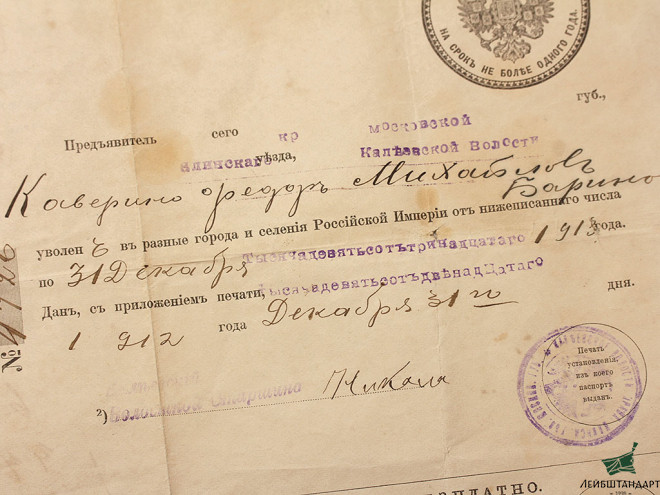 НА СРОКЪ НЕ БОЛѢЕ ОДНОГО ГОДА.
губ.,
Предъявитель сего кр московской
Клинскаго уѣзда, Калѣевской Волости
Каверино Федоръ Михайловъ
Барино
уволенъ въ разные города и селенія Россійской Имперіи отъ нижеписаннаго числа
по 31 Декабря Тысячадевятьсотътринадцатаго 1913 года.
Данъ, съ приложеніемъ печати, Тысячадевятьсотъдвѣнадцатаго
1912 года Декабря 31 го дня.
№ 4726
Печать
установленія,
изъ коего
паспортъ
выданъ.
Волостной Старшина
2)
ПЛАТНО.
ЛЕЙБШТАНДАРТ